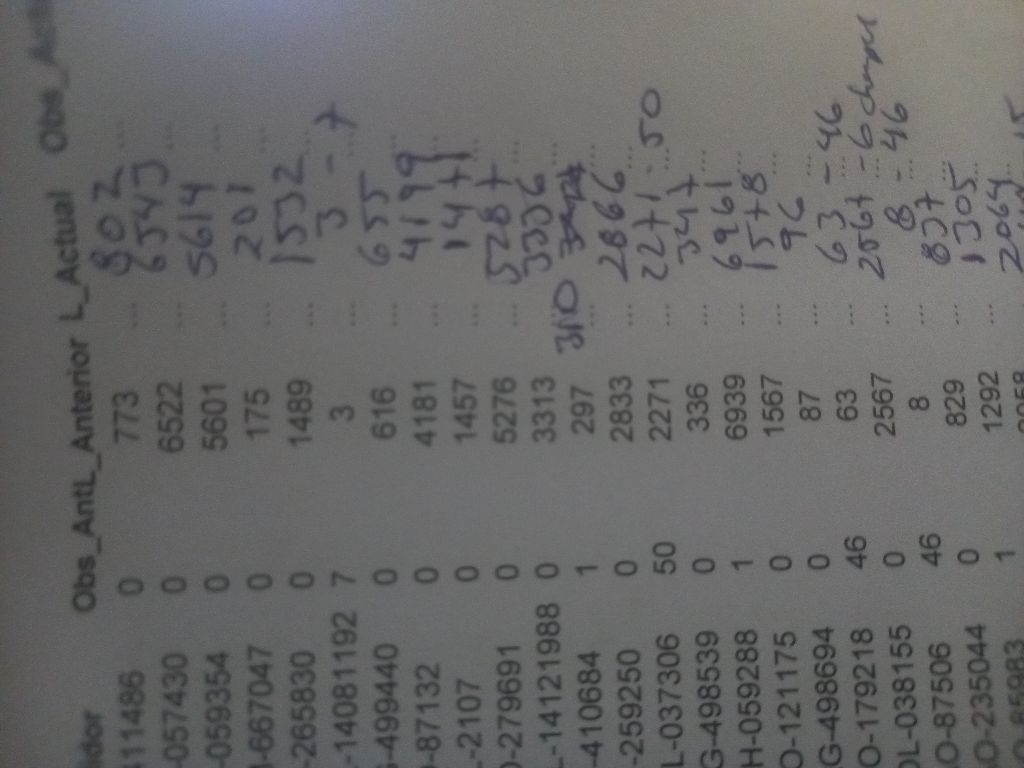 idor Obs_AntL_Anterior L_Actual Obs_Act
411486 0 773 .... 802 ....
-057430 0 6522 .... 6543 ....
-059354 0 5601 .... 5614 ....
-667047 0 175 .... 201 ....
-265830 0 1489 .... 1532 ....
-14081192 7 3 .... 3 - 7 ....
-499440 0 616 .... 655 ....
-87132 0 4181 .... 4199 ....
-2107 0 1457 .... 1471 ....
-279691 0 5276 .... 5287 ....
-14121988 0 3313 .... 3336 ....
-410684 1 297 .... 310 ....
-259250 0 2833 .... 2866 ....
L-037306 50 2271 .... 2271 - 50 ....
G-498539 0 336 .... 347 ....
H-059288 1 6939 .... 6961 ....
O-121175 0 1567 .... 1578 ....
G-498694 0 87 .... 96 ....
O-179218 46 63 .... 63 - 46 ....
OL-038155 0 2567 .... 2567 - 6 ....
AO-87506 46 8 .... 8 - 46 ....
AO-235044 0 829 .... 837 ....
O-85983 1 1292 .... 1305 ....
2058 .... 2064